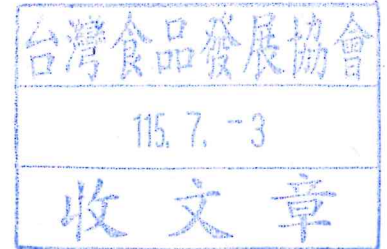 台灣食品發展協會
115. 7. -3
收文章